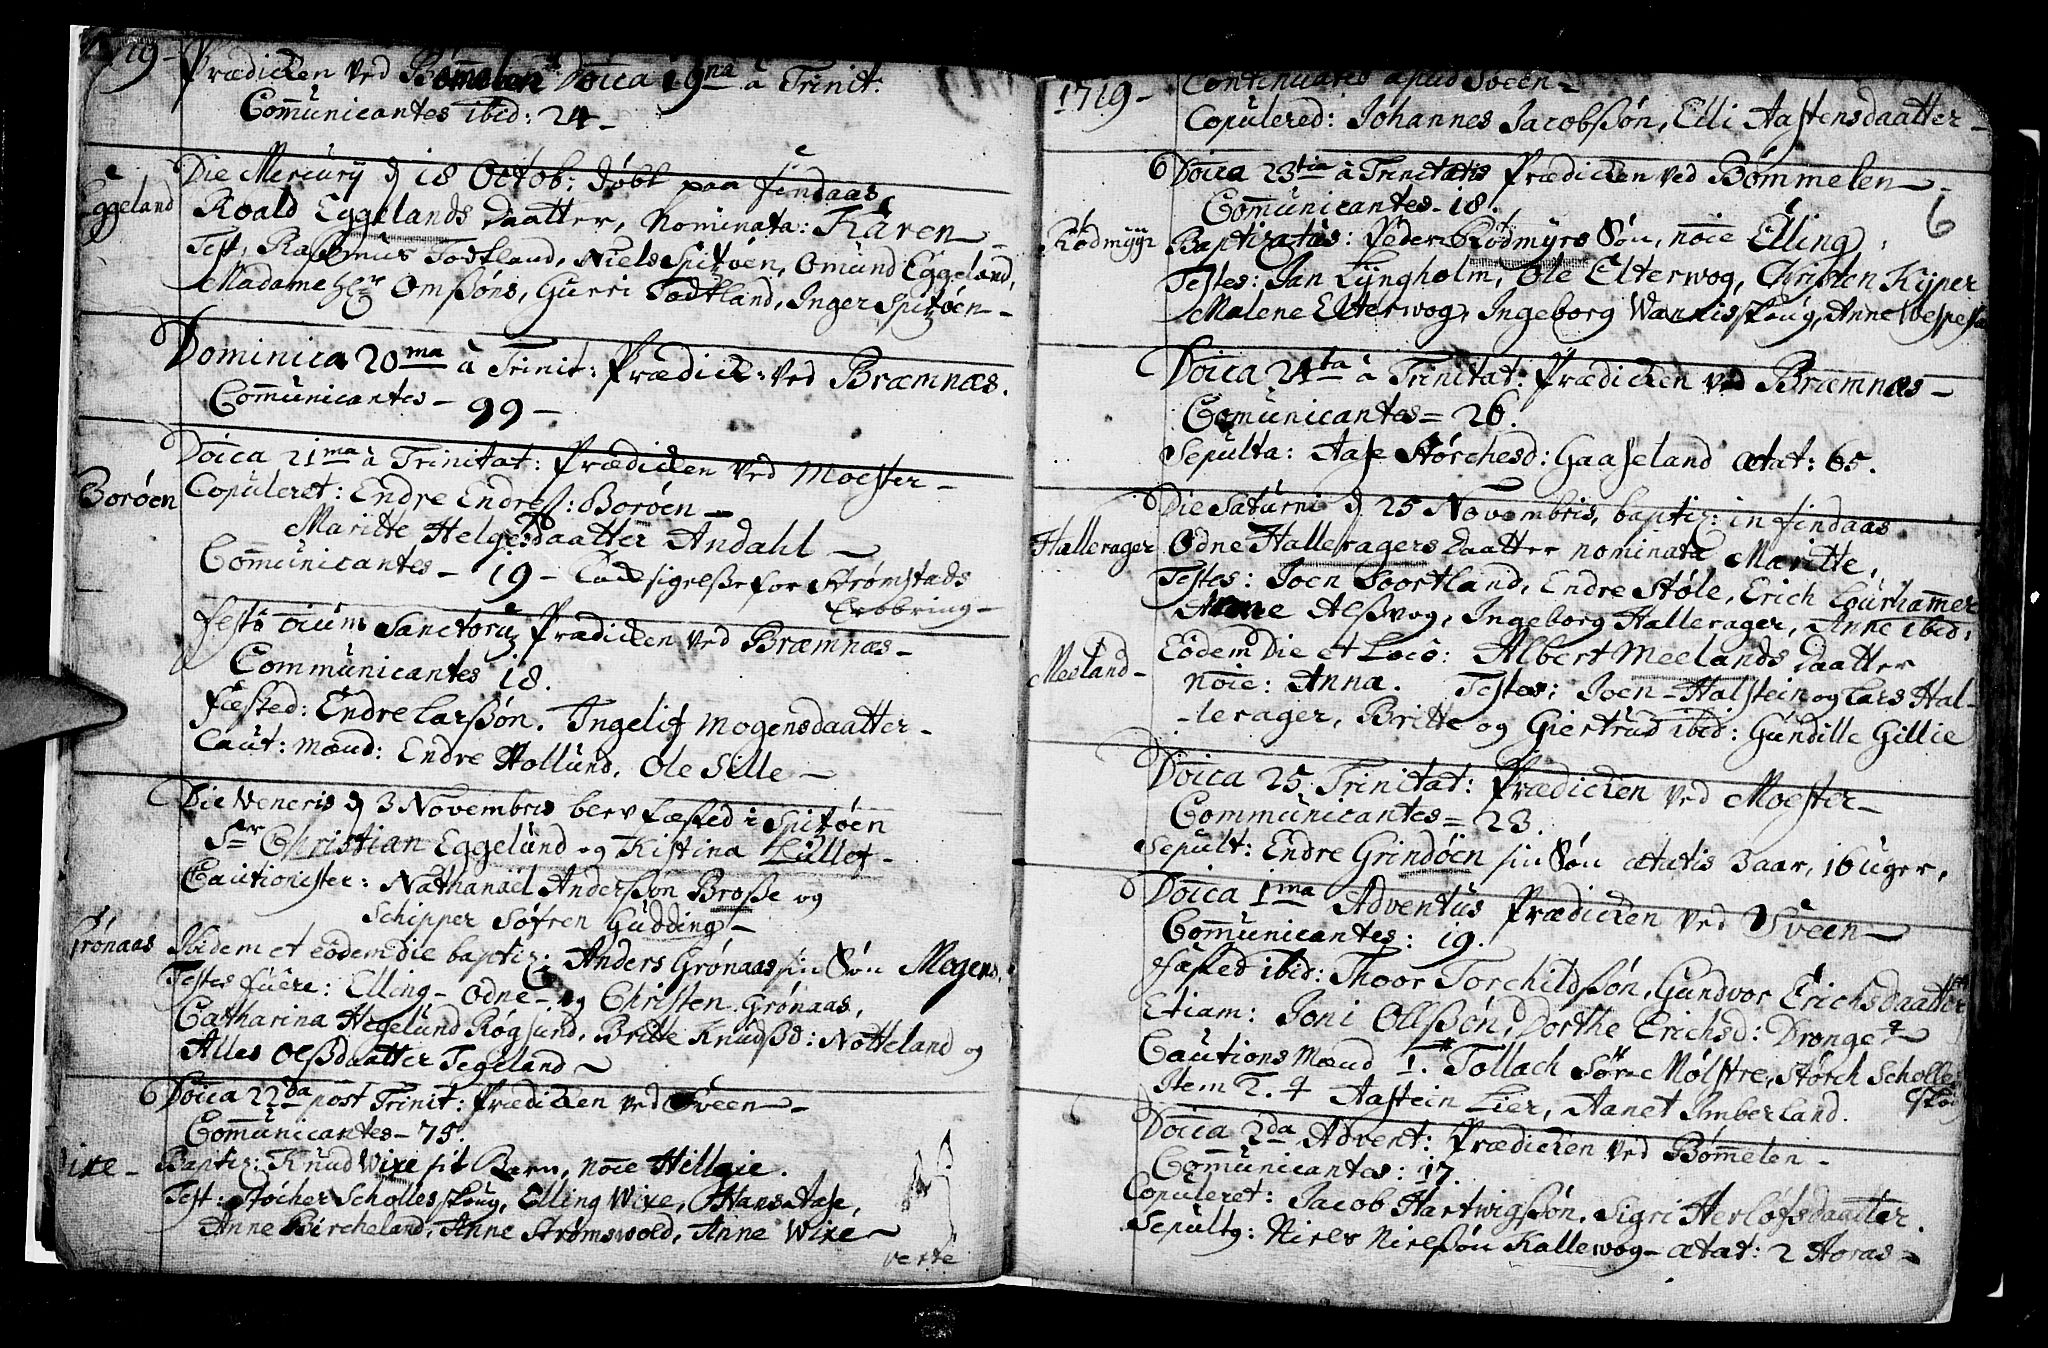 1719-
Prædicken ved Bömelen Dōīca 19na à Trinit:
Com̄unicantes ibid: 24-
Eggeland
Die Mercurij d 18 Octob: döbt paa Findaas
Roald Eggelands daatter, Nominata: Karen-
Test: Rasmus Todtland, Niels Spitzöen, Omund Eggeland,
Madame Hr Omssöns, Gurri Todtland, Inger Spitzöen-
Dominica 20ma à Trinit: Prædick: ved Bræmnæs.
Com̄unicantes- 99-
Boröen
Dōīca 21ma à Trinitat: Prædicken ved Moester-
Copuleret: Endre Endress: Boröen-
Maritte Helgesdaatter Andahl-
Com̄unicantes- 19- for Strömstads
Erobbring-
Festo ōīum Sanctorum Prædicken ved Bræmnæs-
Communicantes 18.
Fæsted: Endre Larssön. Ingelif Mogensdaatter-
Caut: mænd: Endre Hollund, Ole Sille-
Die Veneris d 3 Novembris blev fæsted i Spitzöen
Sr Christian Eggelund og Kistina Lüllef-
Cautionister: Nathanael Anderssön Brosse og
Schipper Söfren Gudding-
Grönaas
Ibidem et eodem die baptiz: Anders Grönaas sin Sön Mogens.
Testes fuere: Elling- Odne- og Christen Grönaas,
Catharina Hegelund Rögsund, Britte Knudsd: Notteland og
Alles Olssdaatter Tegeland-
Dōīca 22da post Trinit: Prædicken ved Sveen-
Com̄unicantes- 75.
Wixe-
Baptiz: Knud Wixe sit Barn, nōīe Hillgie.
Test: Störcher Schollesskoug, Elling Wixe, Hans Aase,
Anne Bircheland, Anne Strömswold, Anne Wixe-
verte
1719-
Continuatio apud Sveen-
Copulered: Johannes Jacobssön, Elli Aastensdaatter-
6
Dōīca 23tia à Trinitatis Prædicken ved Bömmelen-
Communicantes- 18.
Rödmyr
Baptizatus: Peder Rödmyrs Sön, nōīe Elling,
Testes: Jan Lyngholm, Ole Elterwog, Christen Kyper
Malene Elterwog, Ingeborg Wannisskoug, Anne
Dōīca 24ta à Trinitat: Prædicken ved Bræmnæs-
Com̄unicantes= 26.
Sepulta: Aase Störchesd: Gaaseland ætat: 65.
Die Saturni d 25 Novembris, baptiz: in Findaas
Hallerager
Odne Halleragers daatter nominata Maritte,
Testes: Joen Soortland, Endre Stöle, Erich Courham̄er
Anne Alsswog, Ingeborg Hallerager, Anne ibid:
Meeland-
Eodem Die et Loco: Albert Meelands daatter
nōīe: Anna. Testes: Joen- Halstein og Lars Hal-
-lerager, Britte og Giertrud ibid: Gundille Gillie
Dōīca 25. Trinitat: Prædicken ved Moester-
Communicantes= 23.
Sepult: Endre Grindöen sin Sön ætatis 3 aar, 16 uger,
Dōīca 1ma Adventus Prædicken ved Sveen-
Com̄unicantes: 19.
Fæsted ibid: Thoor Torchildssön, Gundvor Erichsdaatter
Etiam: Joni Ollssön, Dorthe Erichsd: Dronge
Cautions Mænd 1. Tollach Söre Mölstre, Störch Scholles
skou
Item 2. Aastein Lier, Aanet Imberland.
Dōīca 2da Advent: Prædicken ved Böm̄elen-
Com̄unicantes: 17.
Copuleret: Jacob Hartwigssön, Sigri Herlofsdaatter.
Sepultg: Niels Nielssön Kallewog- ætat: 2 Horas-